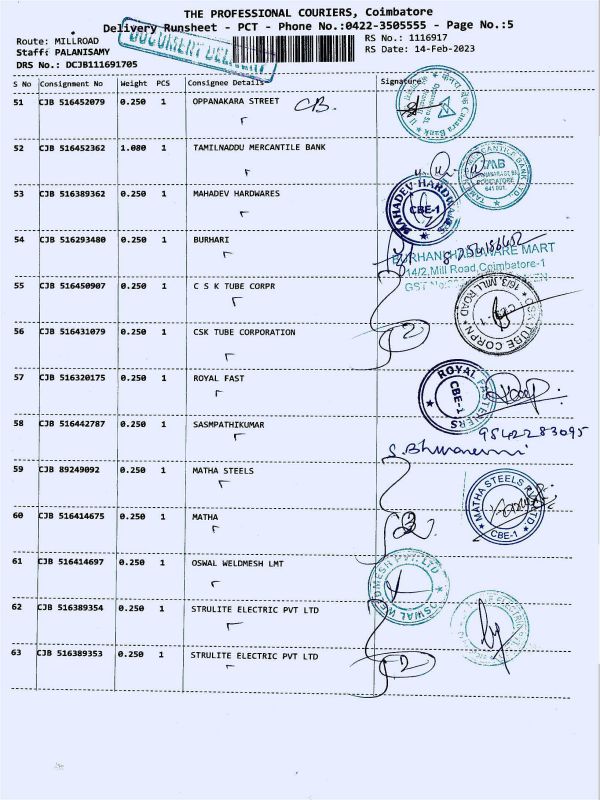 THE PROFESSIONAL COURIERS, Coimbatore
Delivery Runsheet - PCT - Phone No.:0422-3505555 - Page No.:5
Route: MILLROAD
RS No.: 1116917
Staff: PALANISAMY
RS Date: 14-Feb-2023
DRS No.: DCJB111691705
DOCUMENT
S No Consignment No Weight PCS Consignee Details Signature
51 CJB 516452079 0.250 1 OPPANAKARA STREET CB.
Canara Bank
52 CJB 516452362 1.080 1 TAMILNADU MERCANTILE BANK
TMB
53 CJB 516389362 0.250 1 MAHADEV HARDWARES
MAHADEV HARDWARES
CBE-1
54 CJB 516293480 0.250 1 BURHARI
BURHANI HARDWARE MART
14/2, Mill Road, Coimbatore-1
GST No
55 CJB 516450907 0.250 1 C S K TUBE CORPR
CSK TUBE CORPN
16/3, MILL ROAD
56 CJB 516431079 0.250 1 CSK TUBE CORPORATION 2
57 CJB 516320175 0.250 1 ROYAL FAST
ROYAL FASTENERS
CBE-1
58 CJB 516442787 0.250 1 SASMPATHIKUMAR
9542283095
59 CJB 89249092 0.250 1 MATHA STEELS
MATHA STEELS PVT LTD
CBE-1
60 CJB 516414675 0.250 1 MATHA 2
61 CJB 516414697 0.250 1 OSWAL WELDMESH LMT
OSWAL WELDMESH PVT. LTD.
62 CJB 516389354 0.250 1 STRULITE ELECTRIC PVT LTD
63 CJB 516389353 0.250 1 STRULITE ELECTRIC PVT LTD 2